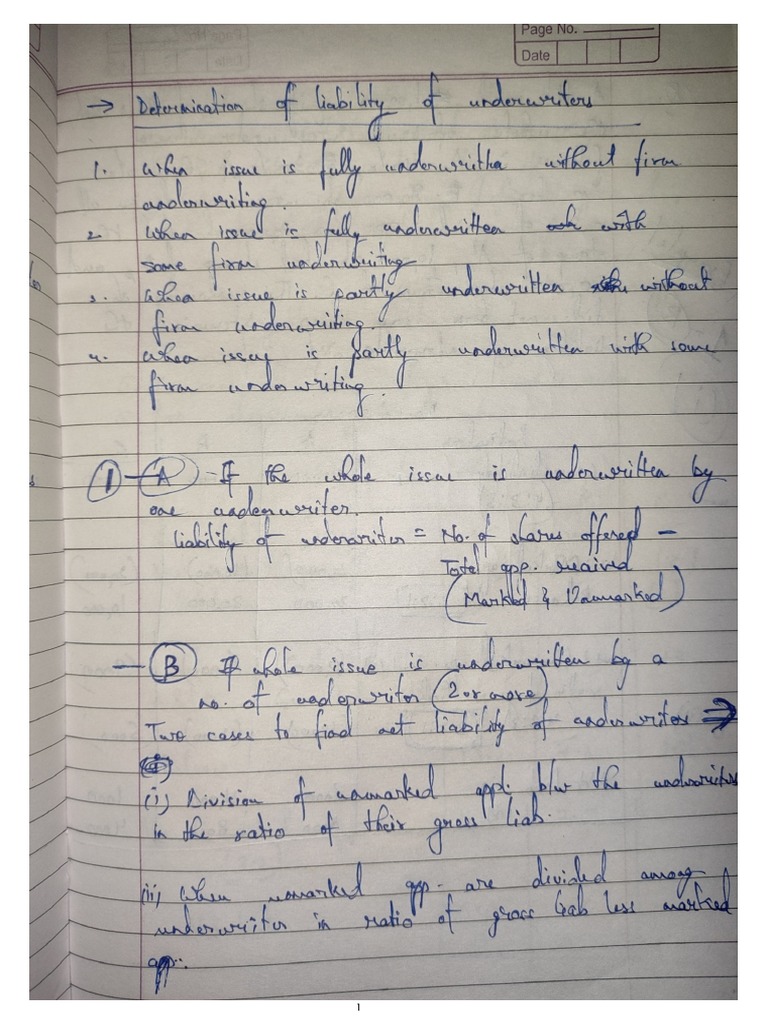 Page No.
Date
→ Determination of liability of underwriters
1. When issue is fully underwritten without firm
underwriting.
2. When issue is fully underwritten with
some firm underwriting
3. When issue is partly underwritten without
firm underwriting.
4. When issue is partly underwritten with some
firm underwriting.
① - Ⓐ - If the whole issue is underwritten by
one underwriter.
liability of underwriter = No. of shares offered -
Total app. received
(Marked & Unmarked)
- Ⓑ If whole issue is underwritten by a
no. of underwriter (2 or more)
Two cases to find net liability of underwriter ⇒
(i) Division of unmarked appl. b/w the underwriters
in the ratio of their gross liab.
(ii) When unmarked app. are divided among
underwriter in ratio of gross liab less marked
app.
1